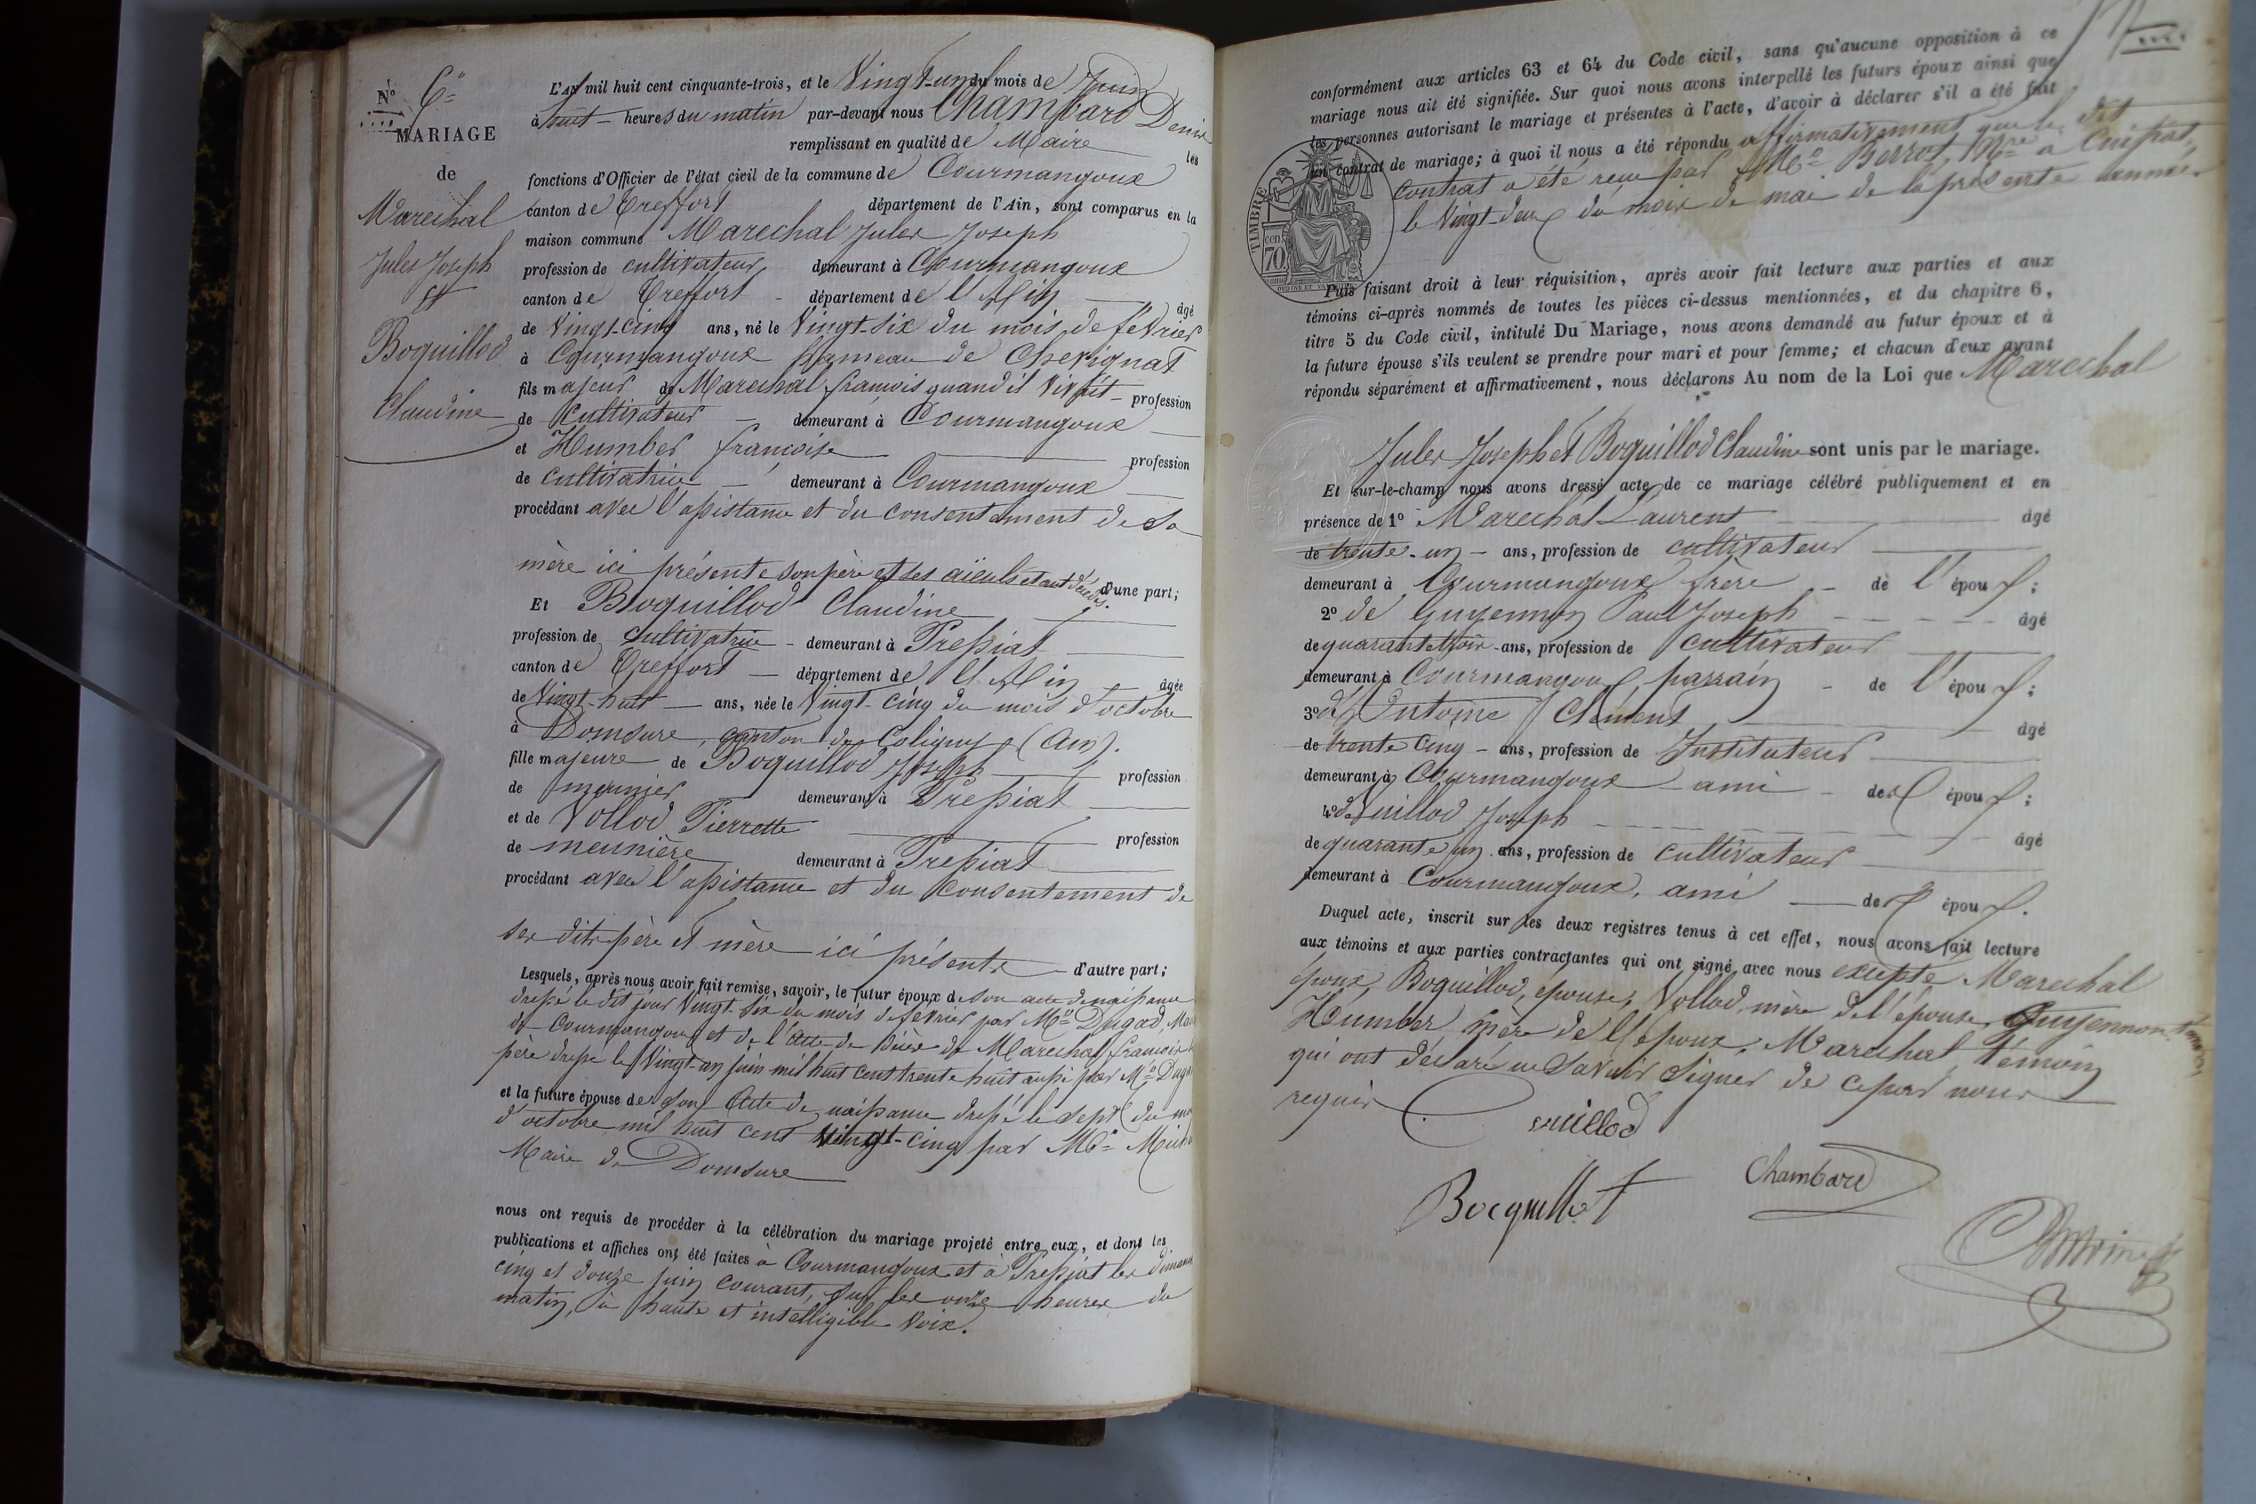 N° 6=
MARIAGE
de
Marechal
Jules Joseph
et
Boquillod
Claudine
L'AN mil huit cent cinquante-trois, et le Vingt-un du mois de Juin
à huit heures du matin par-devant nous Chambard Denis
remplissant en qualité de Maire les
fonctions d'Officier de l'état civil de la commune de Courmangoux
canton de Treffort département de l'Ain, sont comparus en la
maison commune Marechal Jules Joseph
profession de cultivateur demeurant à Courmangoux
canton de Treffort département de l'Ain âgé
de Vingt-cinq ans, né le Vingt-six du mois de février
à Courmangoux hameau de Chevignat
fils majeur de Marechal francois quand il vivait profession
de Cultivateur demeurant à Courmangoux
et Humber francoise profession
de cultivatrice demeurant à Courmangoux
procédant avec l'assistance et du consentement de sa
mère ici présente son père et ses aïeuls étant décédés. d'une part;
Et Boquillod Claudine
profession de cultivatrice demeurant à Pressiat
canton de Treffort département de l'Ain âgée
de Vingt-huit ans, née le Vingt-cinq du mois d'octobre
à Domsure, canton de Coligny (Ain).
fille majeure de Boquillod Joseph profession
de meunier demeurant à Pressiat
et de Vollod Pierrette profession
de meunière demeurant à Pressiat
procédant avec l'assistance et du consentement de
ses dits père et mère ici présents d'autre part;
Lesquels, après nous avoir fait remise, savoir, le futur époux de son acte de naissance
dressé le dit jour Vingt-six du mois de février par Mr Dugad,
de Courmangoux et de l'acte de décès de Marechal francois
père dressé le Vingt-un juin mil huit cent trente huit aussi par Mr
et la future épouse de son Acte de naissance dressé le sept du
d'octobre mil huit cent vingt-cinq par Mr
Maire de Domsure
nous ont requis de procéder à la célébration du mariage projeté entre eux, et dont les
publications et affiches ont été faites à Courmangoux et à Pressiat les
cinq et douze juin courant, sur les onze heures du
matin, à haute et intelligible voix.
conformément aux articles 63 et 64 du Code civil, sans qu'aucune opposition à ce
mariage nous ait été signifiée. Sur quoi nous avons interpellé les futurs époux ainsi que
les personnes autorisant le mariage et présentes à l'acte, d'avoir à déclarer s'il a été fait
un contrat de mariage; à quoi il nous a été répondu affirmativement que le dit
contrat a été reçu par Me Berrod, Nre à Cuisiat,
le Vingt-deux du mois de mai de la présente année
TIMBRE
cen. 70
Puis faisant droit à leur réquisition, après avoir fait lecture aux parties et aux
témoins ci-après nommés de toutes les pièces ci-dessus mentionnées, et du chapitre 6,
titre 5 du Code civil, intitulé Du Mariage, nous avons demandé au futur époux et à
la future épouse s'ils veulent se prendre pour mari et pour femme; et chacun d'eux ayant
répondu séparément et affirmativement, nous déclarons Au nom de la Loi que Marechal
Jules Joseph et Boquillod Claudine sont unis par le mariage.
Et sur-le-champ nous avons dressé acte de ce mariage célébré publiquement et en
présence de 1° Marechal Laurent âgé
de trente-un ans, profession de cultivateur
demeurant à Courmangoux frère de l'époux;
2° de Guyennon Paul Joseph âgé
de quarante trois ans, profession de cultivateur
demeurant à Courmangoux, parrain de l'époux;
3° d'Antoine Clément âgé
de trente cinq ans, profession de Instituteur
demeurant à Courmangoux ami de l'époux;
4° de Cuillod Joseph âgé
de quarante un ans, profession de cultivateur
demeurant à Courmangoux, ami de l'époux.
Duquel acte, inscrit sur les deux registres tenus à cet effet, nous avons fait lecture
aux témoins et aux parties contractantes qui ont signé avec nous excepté Marechal
époux, Boquillod, épouse, Vollod, mère de l'épouse, Guyennon témoin
Humber, mère de l'époux, Marechal témoin
qui ont déclaré ne savoir signer de ce par nous
requis
Cuillod
Chambard
Bocquillot
Antoine